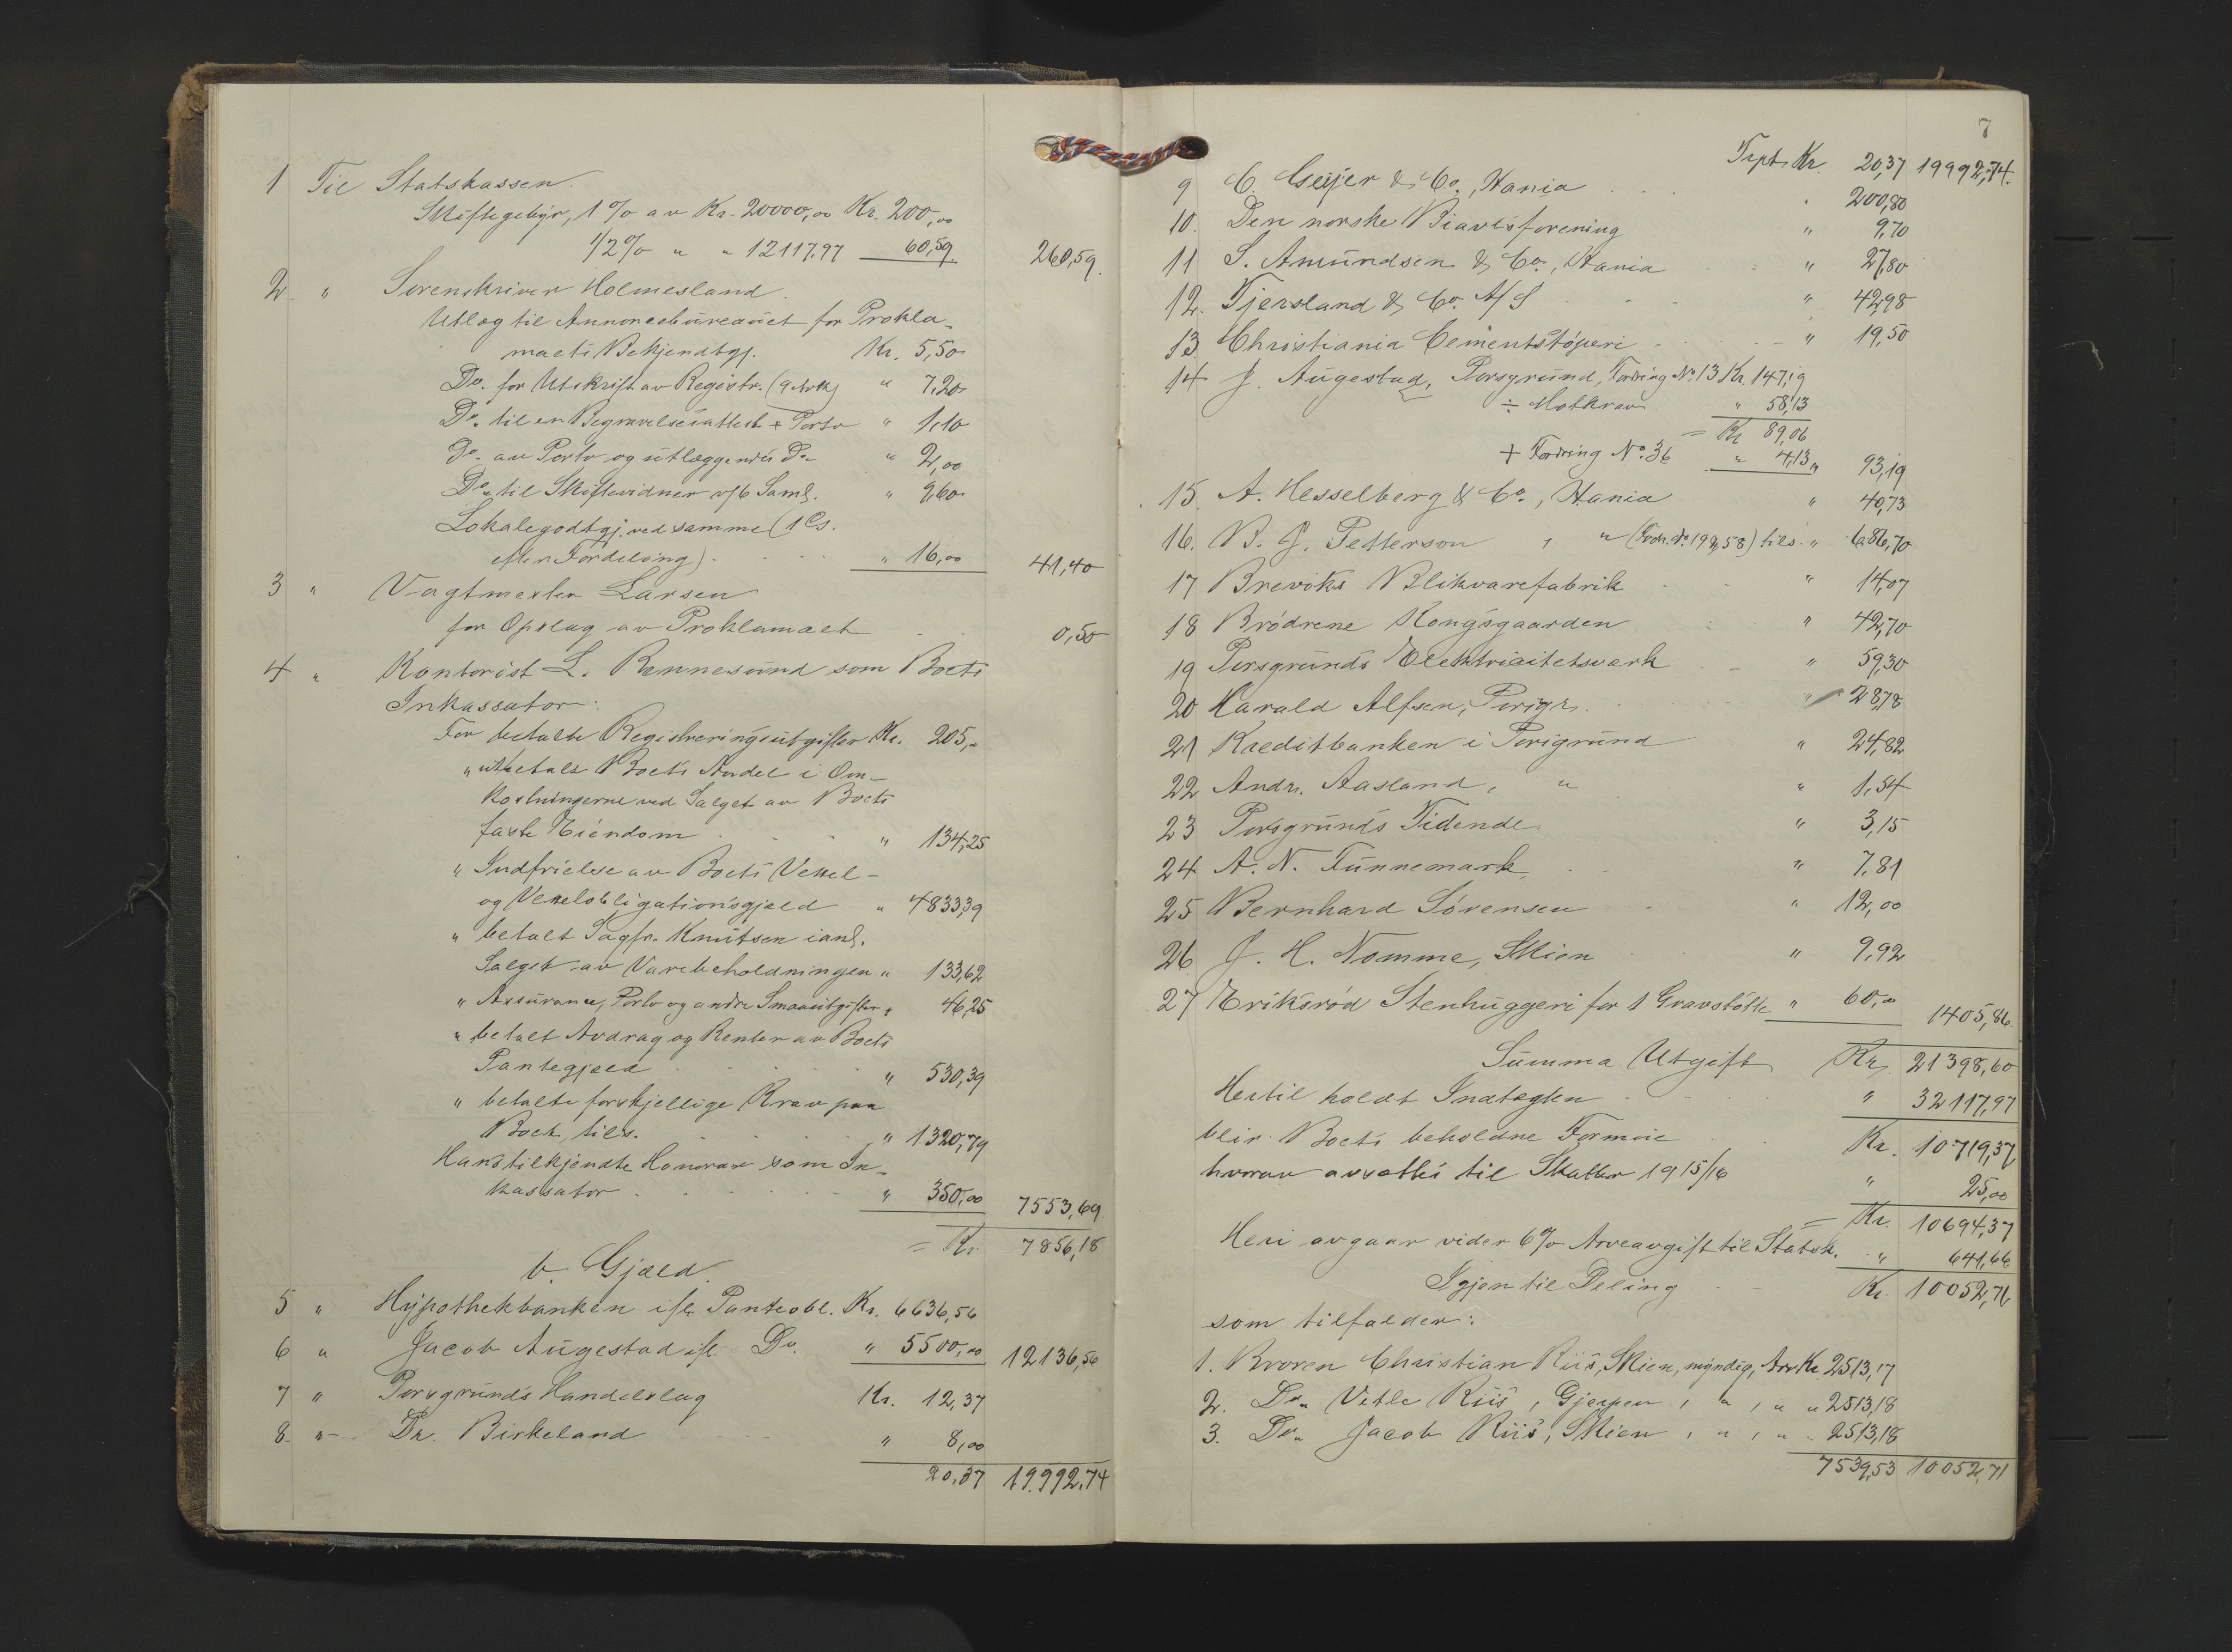 1 Til Statskassen.
Skiftegebyr, 1% av Kr. 20000,00 Kr. 200,00
1/2% " " 12117,97 60,59 260,59
2 " Sorenskriver Holmesland.
Utlæg til Annoncebureauet for Prokla-
maets Bekjendtgj. Kr. 5,50
Do. for Utskrift av Registr. (9 Ark) " 7,20
Do. til en Begravelsesattest + Porto " 1,10
Do. av Porto og utlæggendes Do " 2,00
Do. til Skiftevidner v/6 Saml. " 9,60
Lokalegodtgj. ved samme (1 Cs.
efter Fordeling). " 16,00 41,40
3 " Vagtmester Larsen
for Opslag av Proklamaet 0,50
4 " Kontorist L. Rennesund som Boets
Inkassator:
For betalte Registreringsutgifter Kr. 205,00
" utbetalt Boets Andel i Om-
kostningerne ved Salget av Boets
faste Eiendom " 134,25
" Indfrielse av Boets Veksel-
og Vekselobligationsgjæld " 4833,39
" betalt Sagfr. Knutsen ianl.
Salget av Varebeholdningen " 133,62
" Assurance, Porto og andre Smaautgifter " 46,25
" betalt Avdrag og Renter av Boets
Pantegjæld " 530,39
" betalte forskjellige Krav paa
Boet, tils. " 1320,79
Hans tilkjendte Honorar som In-
kassator " 350,00 7553,69
= Kr. 7856,18
b. Gjæld.
5 " Hypothekbanken ifl. Panteobl. Kr. 6636,56
6 " Jacob Augestad ifl. Do. " 5500,00 12136,56
7 " Porsgrunds Handelslag Kr. 12,37
8 " Dr. Birkeland " 8,00
20,37 19992,74
7
Trpt. Kr. 20,37 19992,74.
9 C. Geijer & Co., Kania " 200,80
10. Den norske Biavlsforening " 9,70
11 S. Amundsen & Co., Kania " 27,80
12. Fjersland & Co. A/S " 42,98
13 Christiania Cementstøperi " 19,50
14 J. Augestad, Porsgrund, Fordring No. 13 Kr. 147,19
÷ Motkrav " 58,13
= Kr 89,06
+ Fordring No. 36 " 4,13 " 93,19
15. A. Hesselberg & Co., Kania " 40,73
16. B. J. Petterson , " (Fordr. No 198,58) tils. " 686,70
17 Breviks Blikvarefabrik " 14,07
18 Brødrene Kongsgaarden " 42,70
19 Porsgrunds Elektricitetsverk " 59,30
20 Harald Alfsen, Porsgr. " 28,78
21 Kreditbanken i Porsgrund " 24,82
22 Andr. Aasland, " " 1,54
23 Porsgrunds Tidende " 3,15
24 A. N. Funnemark " 7,81
25 Bernhard Sørensen " 12,00
26 J. H. Nomme, Skien " 9,92
27 Eriksrød Stenhuggeri for 1 Gravstøtte " 60,00 1405,86
Summa Utgift Kr. 21398,60
Hertil holdt Indtægten " 32117,97
blir Boets beholdne Formue Kr. 10719,37
hvorav avsættes til Skatter 1915/16 " 25,00
= Kr. 10694,37
Heri avgaar videre 6% Arveavgift til Statsk. " 641,66
Igjen til Deling Kr. 10052,71
som tilfalder:
1. Broren Christian Riis, Skien, myndig, Arv Kr 2513,17
2. Do. Vetle Riis, Gjerpen, " , " " 2513,18
3. Do. Jacob Riis, Skien, " , " " 2513,18
7539,53 10052,71